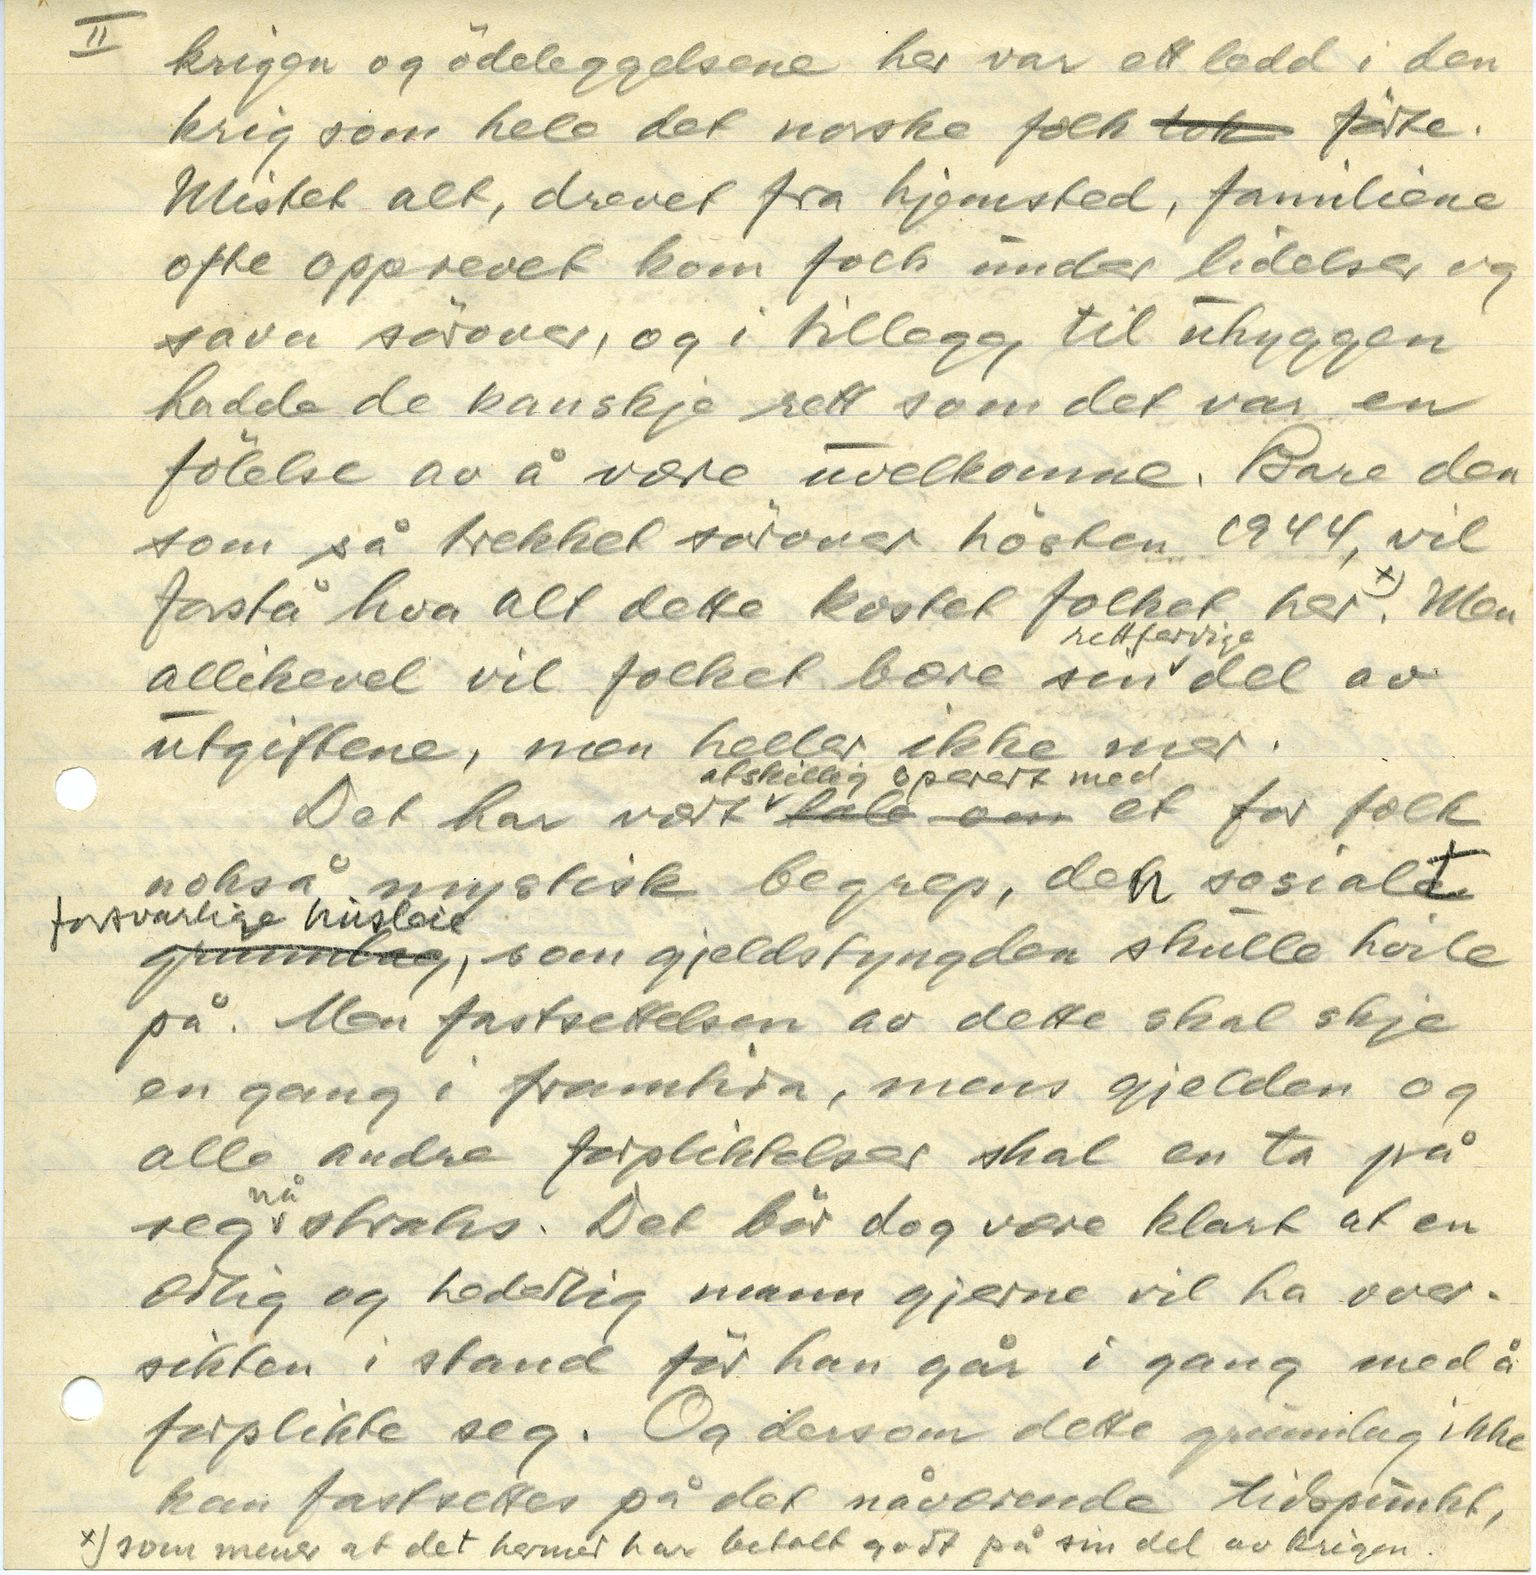 II
krigen og ödeleggelsene her var ett ledd i den
krig som hele det norske folk tok förte.
Mistet alt, drevet fra hjemsted, familiene
ofte opprevet kom folk under lidelser og
savn sörover, og i tillegg til uhyggen
hadde de kanskje rett som det var en
fölelse av å være uvelkomne. Bare den
som så trekket sörover hösten 1944, vil
forstå hva alt dette kostet folket her x). Men
rettferdige
allikevel vil folket bære sin del av
utgiftene, men heller ikke mer.
atskillig operert med
Det har vært tale om et for folk
nokså mystisk begrep, den sosialt
forsvarlige husleie
grunnlag, som gjeldstyngden skulle hvile
på. Men fastsettelsen av dette skal skje
en gang i framtida, mens gjelden og
alle andre forpliktelser skal en ta på
nå
seg straks. Det bör dog være klart at en
ærlig og hederlig mann gjerne vil ha over-
sikten i stand för han går i gang med å
forplikte seg. Og dersom dette grunnlag ikke
kan fastsettes på det nåværende tidspunkt,
x) som mener at det hermed har betalt godt på sin del av krigen.